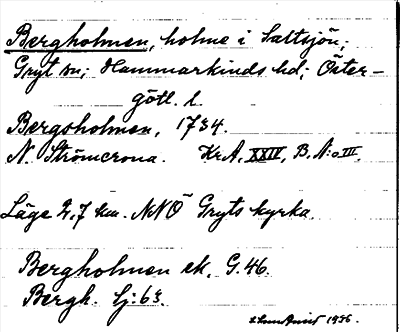 Bergholmen, holme i Saltsjön;
Gryt sn; Hammarkinds hd; Öster-
götl. l.
Bergsholmen, 1734.
N. Strömcrona. Kr.A, XXIV, B, N:o III.
Läge 2,7 km. NNÖ Gryts kyrka.
Bergholmen ek. G.46.
Bergh. lj:63.
1936